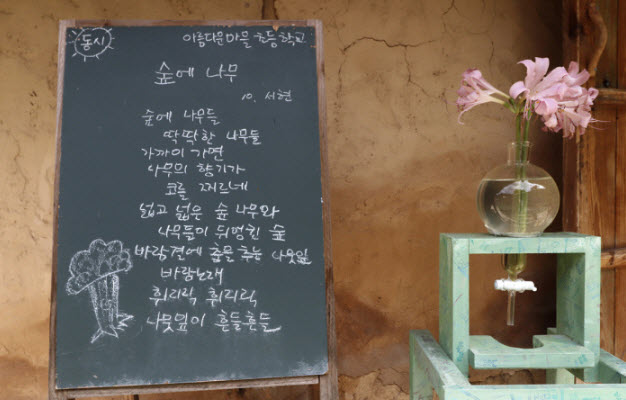 동시
아름다운마을초등학교
숲에 나무
10. 서현
숲에 나무들
딱딱한 나무들
가까이 가면
나무의 향기가
코를 찌르네
넓고 넓은 숲 나무와
나무들이 뒤엉킨 숲
바람결에 춤을 추는 나뭇잎
바람노래
휘리릭 휘리릭
나뭇잎이 흔들흔들